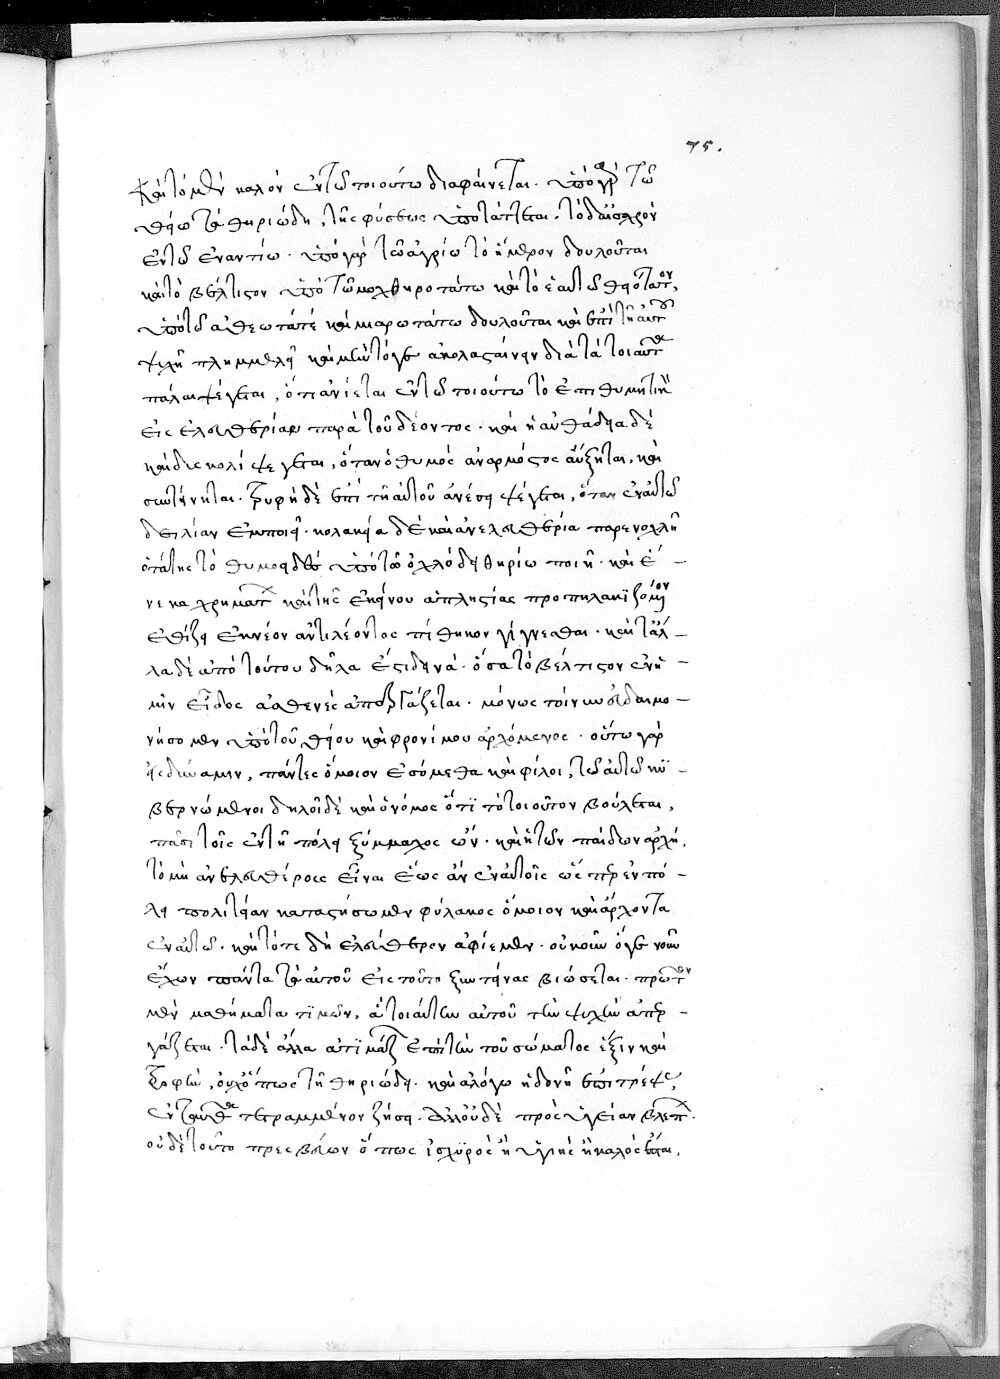 75.
καὶ τὸ μὲν καλὸν ἐν τῶ τοιούτω διαφαίνεται. ὑπὸ γὰρ τῶ
θείω τὰ θηριώδη, τῆς φύσεως ὑποτάττεται. τὸ δ' αἰσχρὸν
ἐν τῶ ἐναντίω. ὑπὸ γὰρ τῶ ἀγρίω τὸ ἥμερον δουλοῦται
καὶ τὸ βέλτιστον ὑπὸ τῶ μοχθηροτάτω καὶ τὸ ἑαυτῶ θειότατον,
ὑπὸ τῶ ἀθεωτάτε καὶ μιαρωτάτω δουλοῦται καὶ ἐπὶ τῆ αὐτοῦ
ψυχῆ πλημμελεῖ καὶ μὲν τόγε ἀκολασταίνειν διὰ τὰ τοιαῦτα
πάλαι ψέγεται, ὅτι ἀνίεται ἐν τῶ τοιούτω τὸ ἐπιθυμητικὸν
εἰς ἐλευθερίαν παρὰ τοῦ δέοντος. καὶ ἡ αὐθάδεια δὲ
καὶ δυσκολί ψέγεται, ὅταν ὁ θυμὸς ἀναρμόστος αὔξηται, καὶ
συντείνηται. τρυφὴ δὲ ἐπὶ τῆ αὐτοῦ ἀνέσει ψέγεται, ὅταν ἐν αὐτῶ
δειλίαν ἐμποιῆ. κολακεία δὲ καὶ ἀνελευθερία παρενοχλῆ
ὁπότης τὸ θυμοειδὲς ὑπὸ τῶ ὀχλώδει θηρίω ποιῆ. καὶ ἕ-
νεκα χρημάτων καὶ τῆς ἐκείνου ἀπληστίας προπηλακϊζόμενον
ἐθίζη ἐκ νέον ἀντι λέοντος πίθηκον γίγνεσθαι. καὶ τἄλ-
λα δὲ ἀπὸ τούτου δῆλα ἐστι δεινά. ὅσα τὸ βέλτιστον ἐν ἡ-
μῖν εἶδος ἀσθενὲς ἀπεργάζεται. μόνως τοίνυν εὐδαιμο-
νήσομεν ὑπὸ τοῦ θείου καὶ φρονίμου ἀρχόμενος. οὕτω γὰρ
εἰς δύναμιν, πάντες ὅμοιον ἐσόμεθα καὶ φίλοι, τῶ αὐτῶ κϋ-
βερνώμενοι δηλοῖ δὲ καὶ ὁ νόμος ὅτϊ τὸ τοιοῦτον βούλεται,
πᾶσι τοῖς ἐν τῆ πόλει ξύμμαχος ὤν. καὶ ἡ τῶν παίδων ἀρχή,
τὸ μὴ ἂν ἐλευθέροις εἶναι ἕως ἂν ἐν αὐτοῖς ὥσπερ ἐν πό-
λει πολιτείαν καταστήσωμεν φύλακος ὅμοιον καὶ ἄρχοντα
ἐν αὐτῶ. καὶ τότε δὴ ἐλεύθερον ἀφίεμεν. οὐκοῦν ὅγε νοῦν
ἔχων πάντα τὰ αὐτοῦ εἰς τοῦτο ξυντείνας βιώσεται. πρῶτον
μὲν μαθήματα τϊμῶν, ἃ τοιαύτην αὐτοῦ τὴν ψυχὴν ἀπερ-
γάζεται. τὰ δὲ ἄλλα ἀτϊμάζων ἔπειτα τὴν τοῦ σώματος ἕξιν καὶ
τροφὴν, οὐχ' ὅπως τῆ θηριώδει. καὶ ἀλόγω ἡδονῆ ἐπιτρέψας,
ἐνταῦθα τετραμμένον ζήσει. ἀλλ' οὐδὲ πρὸς ὑγείαν βλέπων.
οὐδὲ τοῦτο πρεσβεύων ὅπως ἰσχϋρὸς ἢ ὑγιὴς ἢ καλὸς ἔσται,